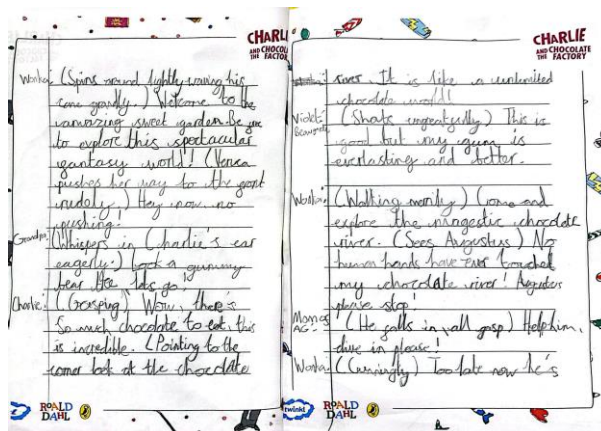 CHARLIE
AND CHOCOLATE
THE FACTORY
Wonka (Spins round lightly waving his
cane grandly.) Welcome to the
amazing sweet garden. Be
to explore this spectacular
fantasy world! (Veruca
pushes her way to the front
rudely) Hey now, no
pushing!
Grandpa (Whispers in Charlie's ear
eagerly.) Look a gummy
bear tree lets go!
Charlie (Gasping) Wow, there's
So much chocolate to eat, this
is incredible. (Pointing to the
corner look at the chocolate
ROALD
DAHL
CHARLIE
AND CHOCOLATE
THE FACTORY
river. It is like a unlimited
chocolate world!
Violet (Shouts ungratefully) This is
good but my gum is
everlasting and better.
Wonka (Walking merrily) Come and
explore the chocolate
river. (Sees Augustus) No
human hands have ever touched
my chocolate river! Augustus
please stop!
AG (He falls in, all gasp) Help him,
dive in please!
Wonka (Cunningly) Too late now he's
twinkl
ROALD
DAHL